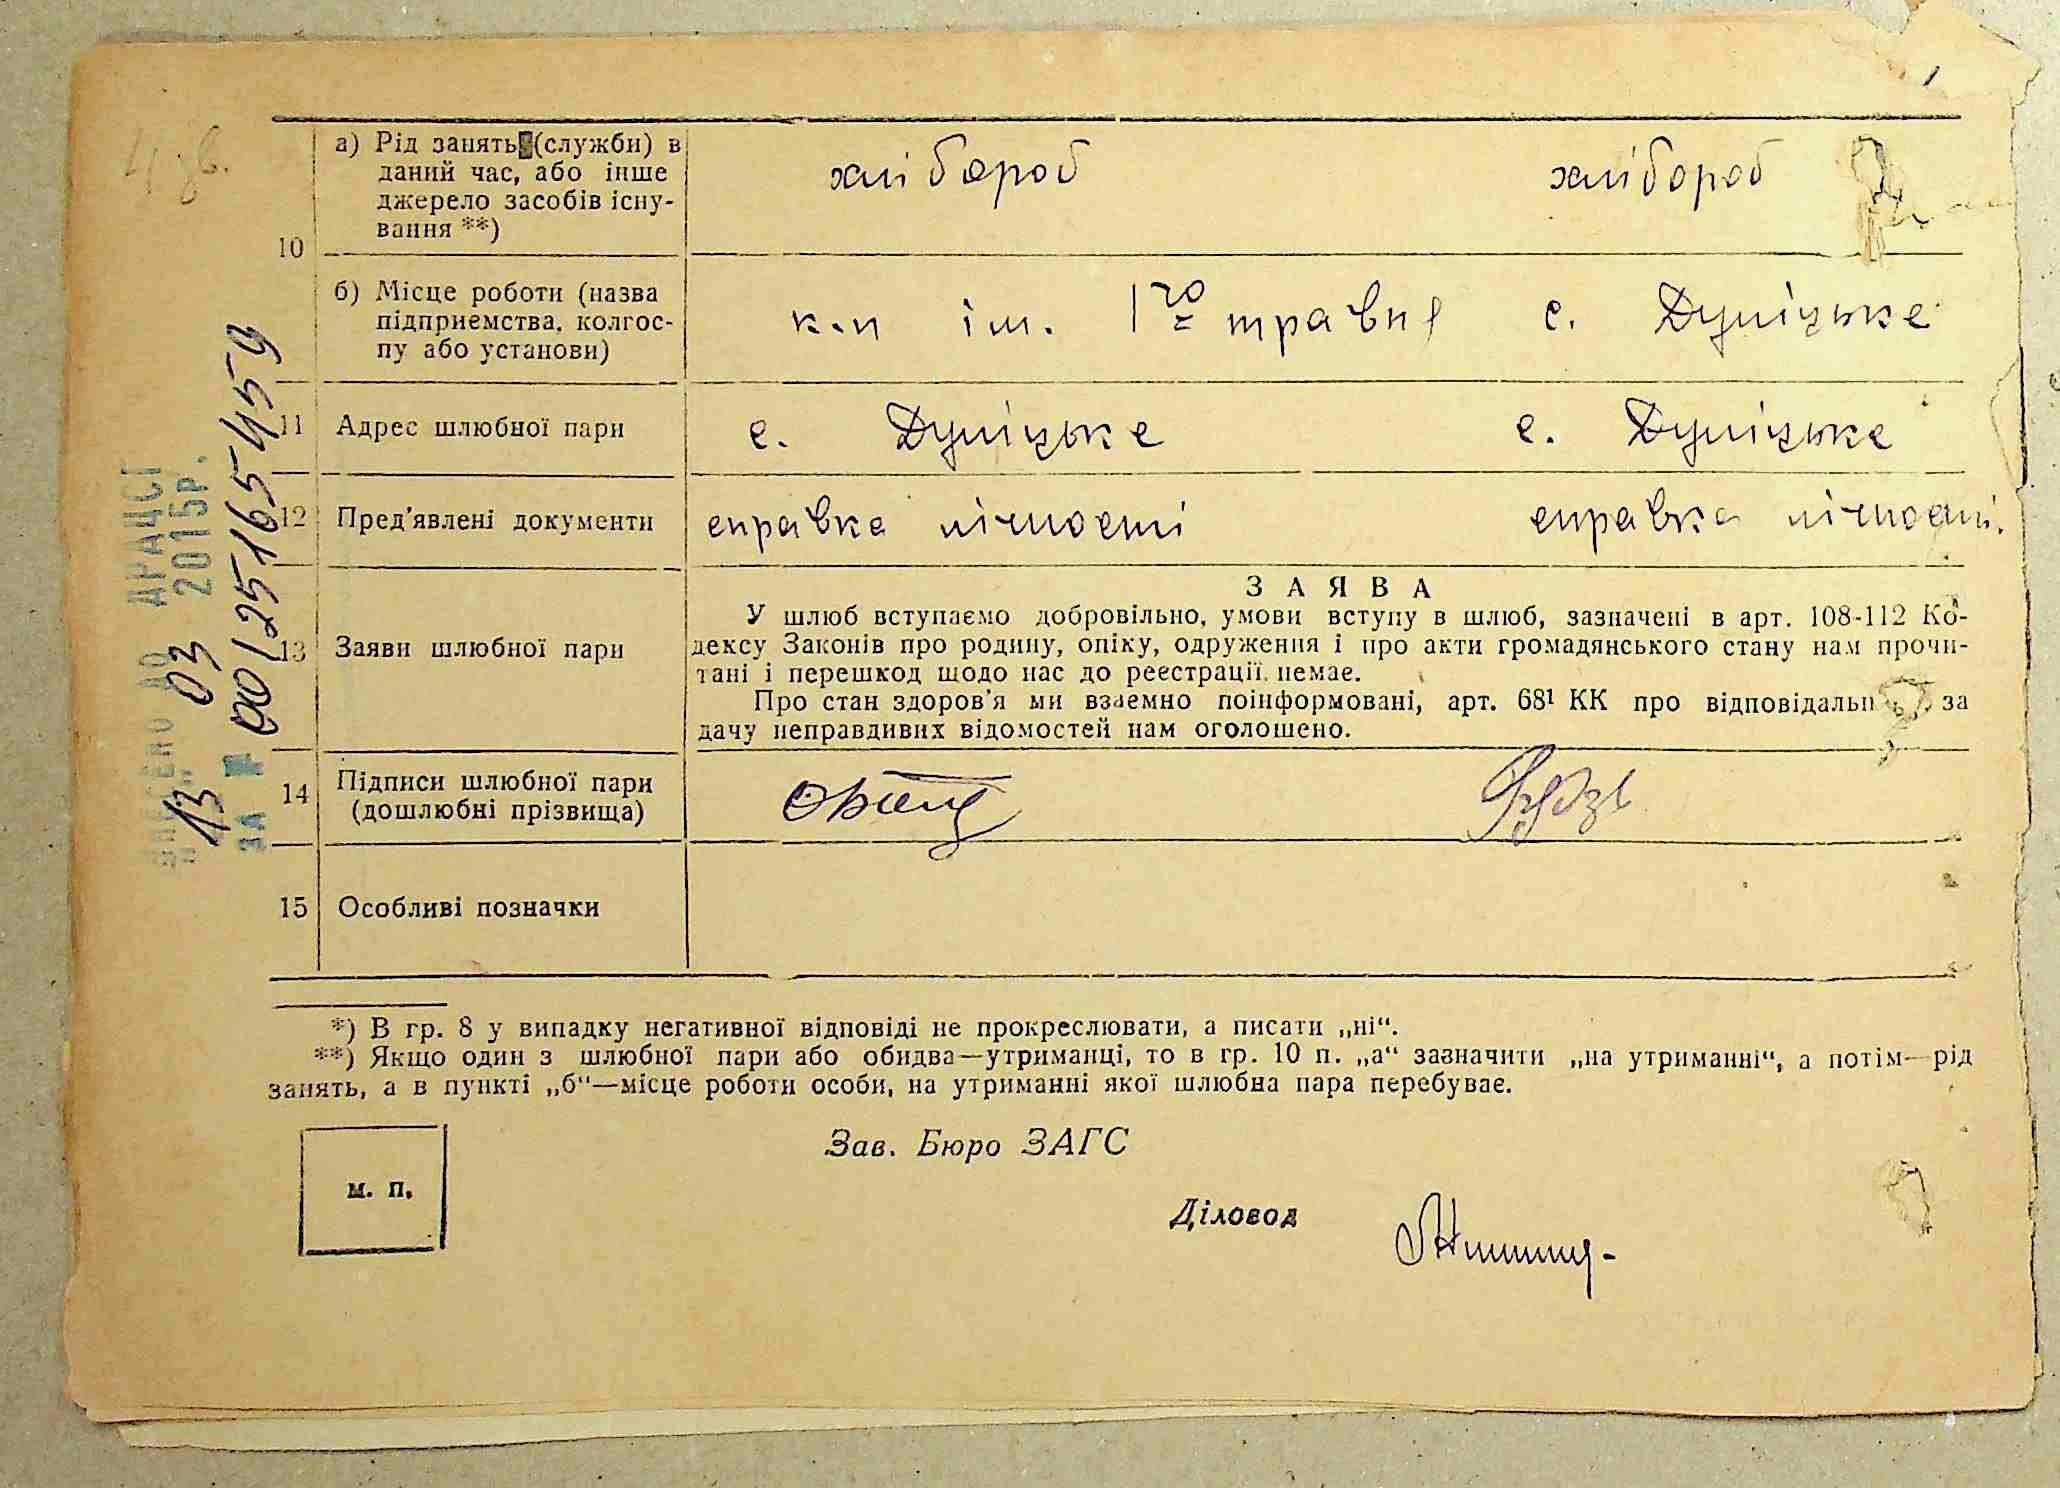 4 зв.
а) Рід занять (служби) в
даний час, або інше
джерело засобів існу-
вання **)
хлібороб хлібороб
10
б) Місце роботи (назва
підприємства, колгос-
пу або установи)
к-п ім. 1го травня с. Дуліцьке
11 Адрес шлюбної пари с. Дуліцьке с. Дуліцьке
12 Пред'явлені документи справка лічності справка лічності.
13 Заяви шлюбної пари
ЗАЯВА
У шлюб вступаємо добровільно, умови вступу в шлюб, зазначені в арт. 108-112 Ко-
дексу Законів про родину, опіку, одруження і про акти громадянського стану нам прочи-
тані і перешкод щодо нас до реєстрації немає.
Про стан здоров'я ми взаємно поінформовані, арт. 68¹ КК про відповідальн за
дачу неправдивих відомостей нам оголошено.
14 Підписи шлюбної пари
(дошлюбні прізвища)
15 Особливі позначки
*) В гр. 8 у випадку негативної відповіді не прокреслювати, а писати „ні“.
**) Якщо один з шлюбної пари або обидва—утриманці, то в гр. 10 п. „а“ зазначити „на утриманні“, а потім—рід
занять, а в пункті „б“—місце роботи особи, на утриманні якої шлюбна пара перебуває.
Зав. Бюро ЗАГС
м. п.
Діловод
ВНЕСЕНО ДО ДРАЦСГ
13 03 2015р.
ЗА № 001251654559